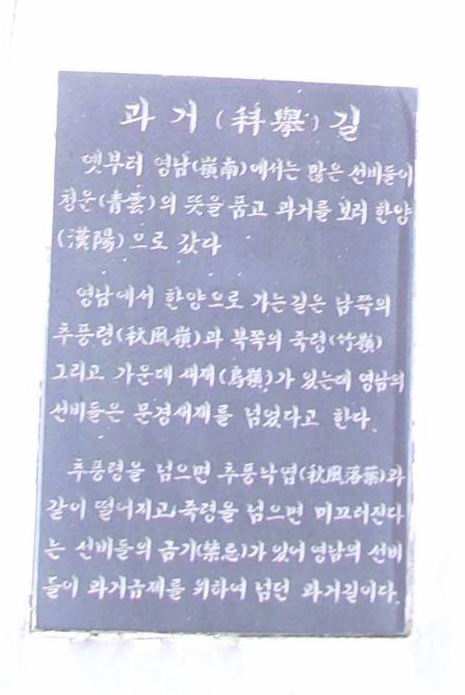 과거(科擧)길
옛부터 영남(嶺南)에서는 많은 선비들이
청운(靑雲)의 뜻을 품고 과거를 보러 한양
(漢陽)으로 갔다
영남에서 한양으로 가는길은 남쪽의
추풍령(秋風嶺)과 북쪽의 죽령(竹嶺)
그리고 가운데 새재(鳥嶺)가 있는데 영남의
선비들은 문경새재를 넘었다고 한다.
추풍령을 넘으면 추풍낙엽(秋風落葉)과
같이 떨어지고, 죽령을 넘으면 미끄러진다
는 선비들의 금기(禁忌)가 있어 영남의 선비
들이 과거급제를 위하여 넘던 과거길이다.